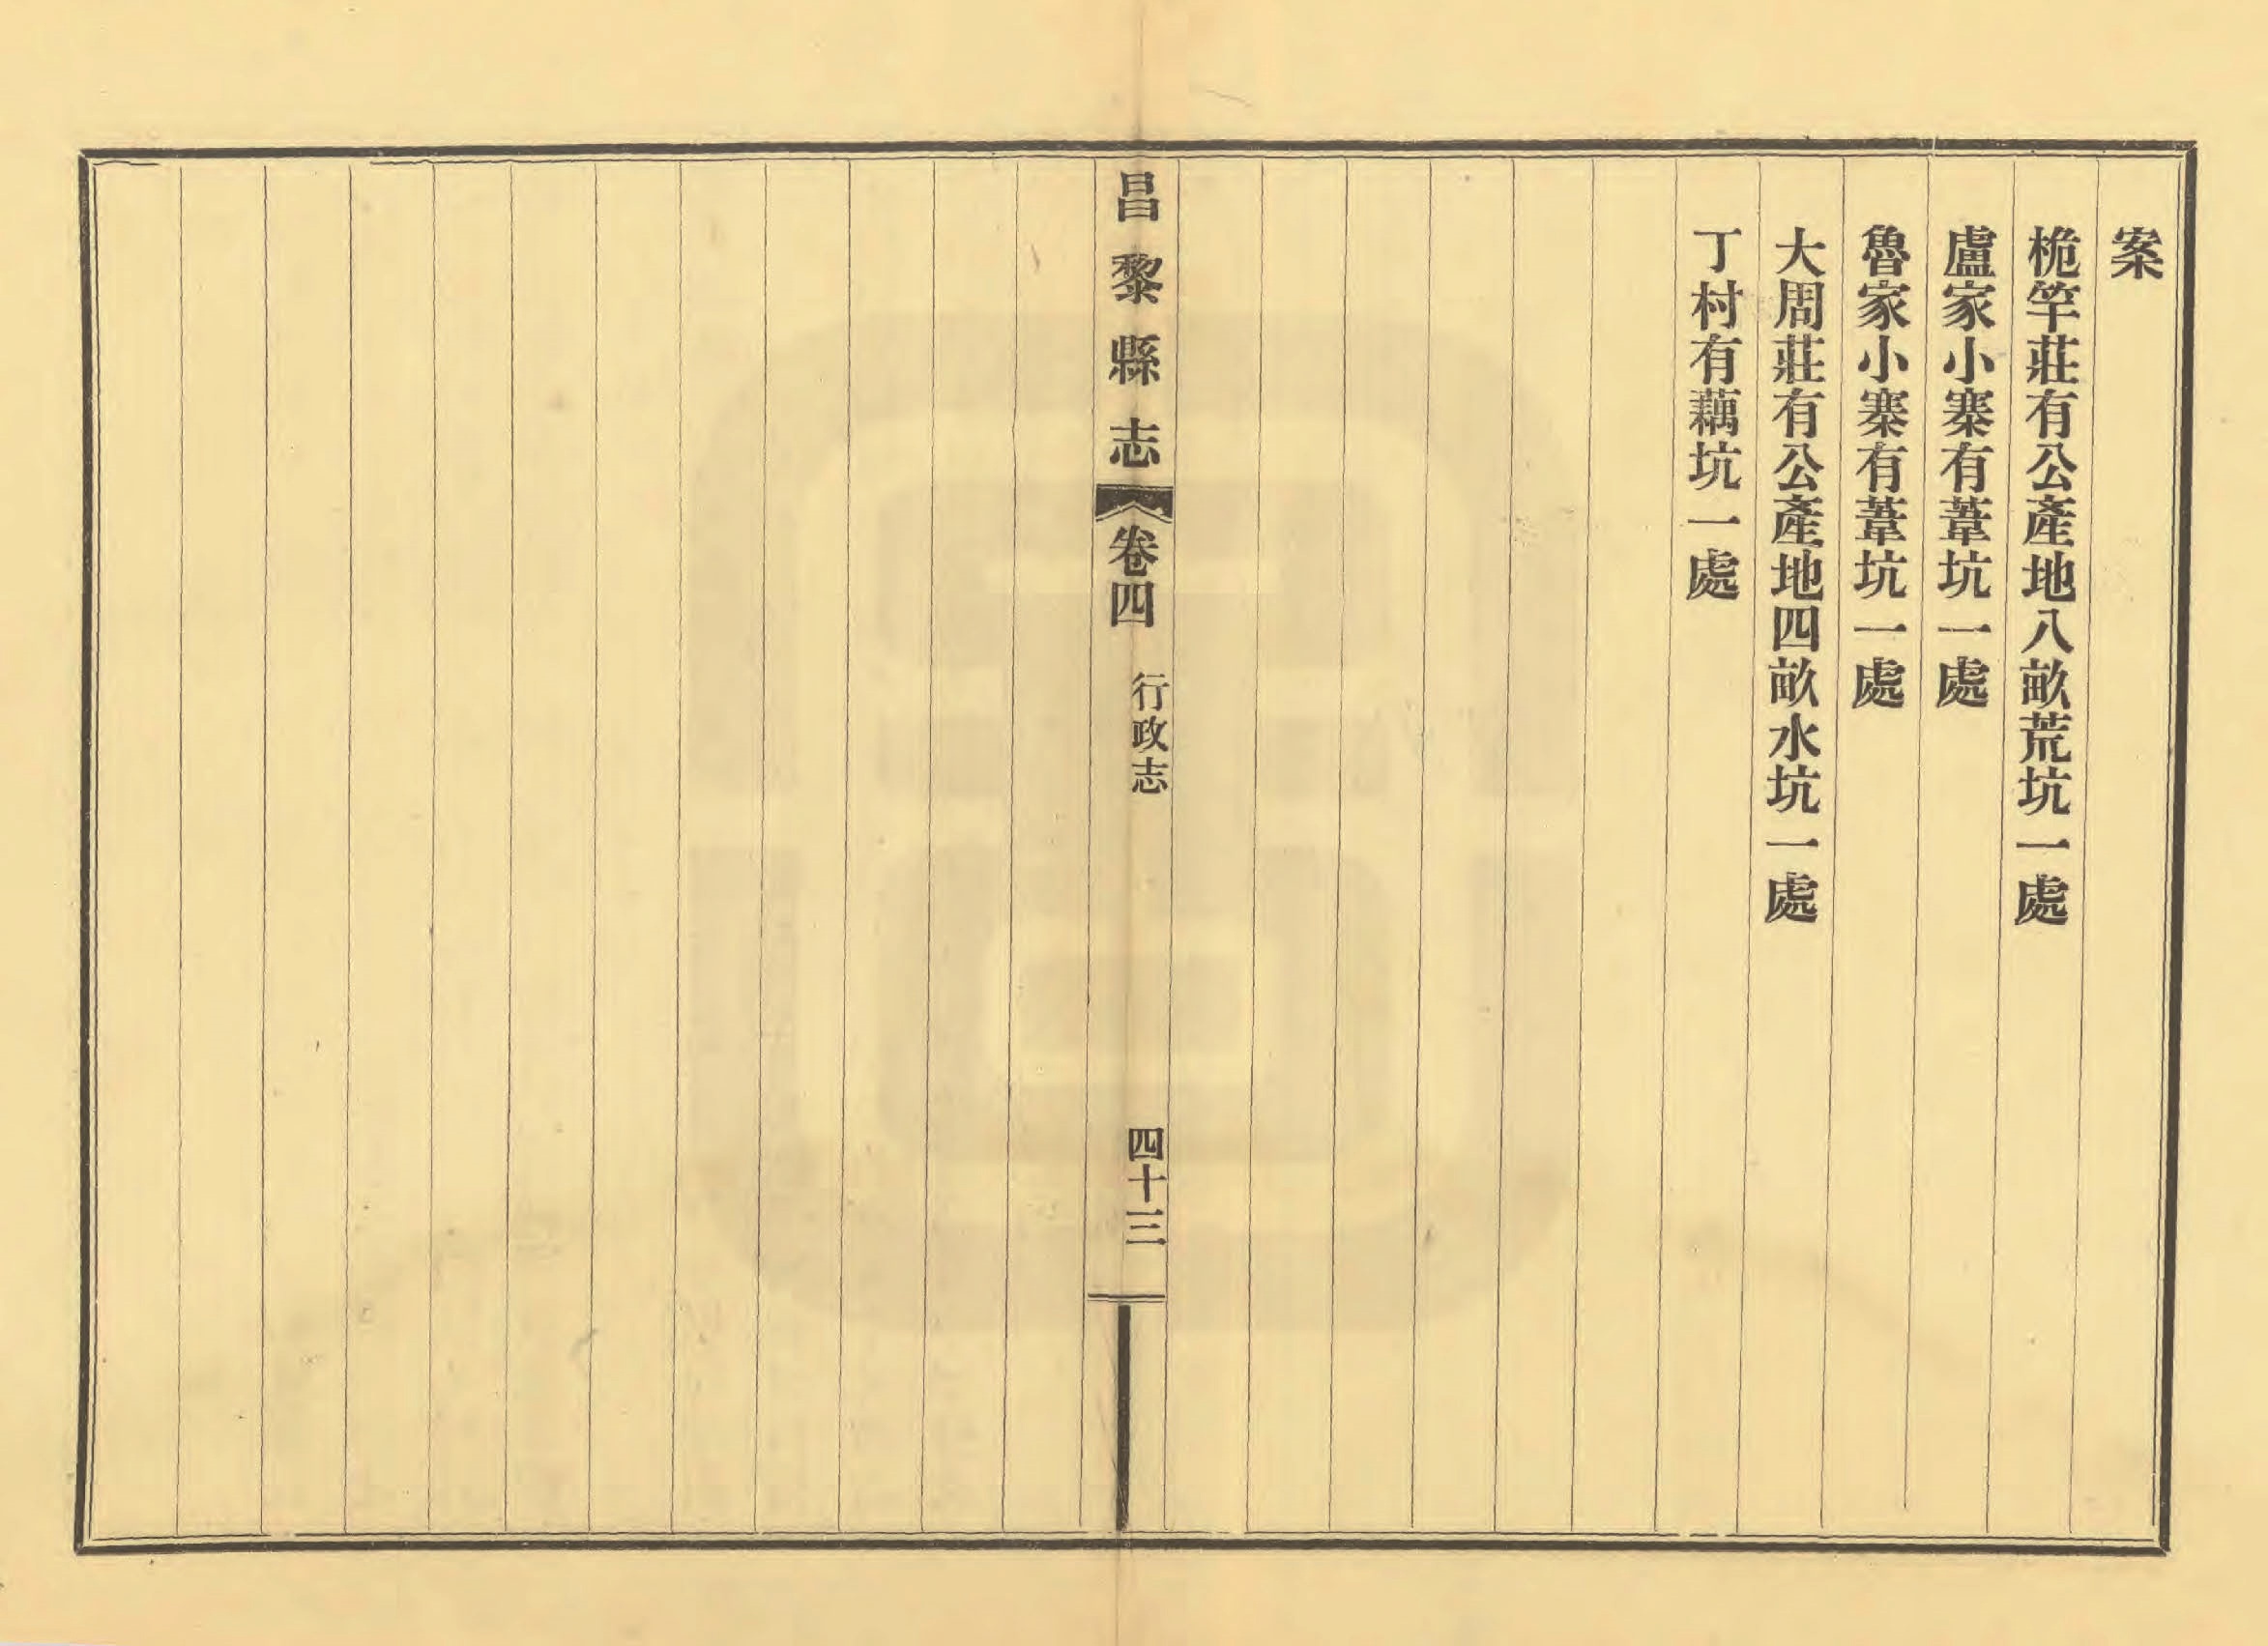 案
桅竿莊有公產地八畝荒坑一處
盧家小寨有葦坑一處
魯家小寨有葦坑一處
大周莊有公產地四畝水坑一處
丁村有藕坑一處
昌黎縣志
卷四
行政志
四十三